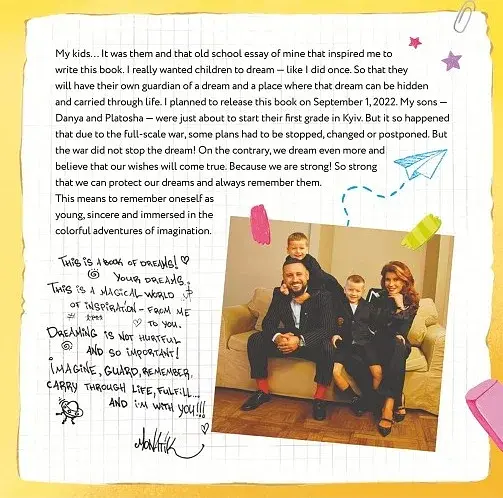 My kids... It was them and that old school essay of mine that inspired me to
write this book. I really wanted children to dream — like I did once. So that they
will have their own guardian of a dream and a place where that dream can be hidden
and carried through life. I planned to release this book on September 1, 2022. My sons —
Danya and Platosha — were just about to start their first grade in Kyiv. But it so happened
that due to the full-scale war, some plans had to be stopped, changed or postponed. But
the war did not stop the dream! On the contrary, we dream even more and
believe that our wishes will come true. Because we are strong! So strong
that we can protect our dreams and always remember them.
This means to remember oneself as
young, sincere and immersed in the
colorful adventures of imagination.
THIS IS A BOOK OF DREAMS!
YOUR DREAMS..
THIS IS A MAGICAL WORLD
OF INSPIRATION - FROM ME
TO YOU.
DREAMING IS NOT HURTFUL
AND SO IMPORTANT!
IMAGINE, GUARD, REMEMBER,
CARRY THROUGH LIFE, FULFILL...
AND I'M WITH YOU!!!
MONATIK